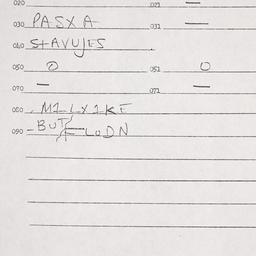 020 021 —
030 PASXA 031 —
040 STAVUJES
050 O 051 O
070 — 071 —
080 . M1LX1KE
090 - BUT FLODN